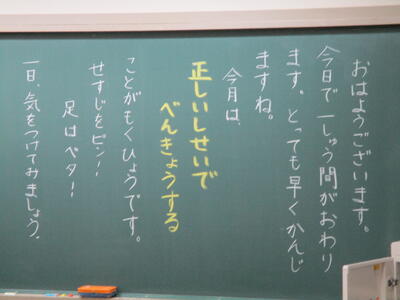 おはようございます。
今日で一しゅう間がおわり
ます。とっても早くかんじ
ますね。
今月は、
正しいしせいで
べんきょうする
ことがもくひょうです。
せすじをピン！
足はペタ！
一日、気をつけてみましょう。